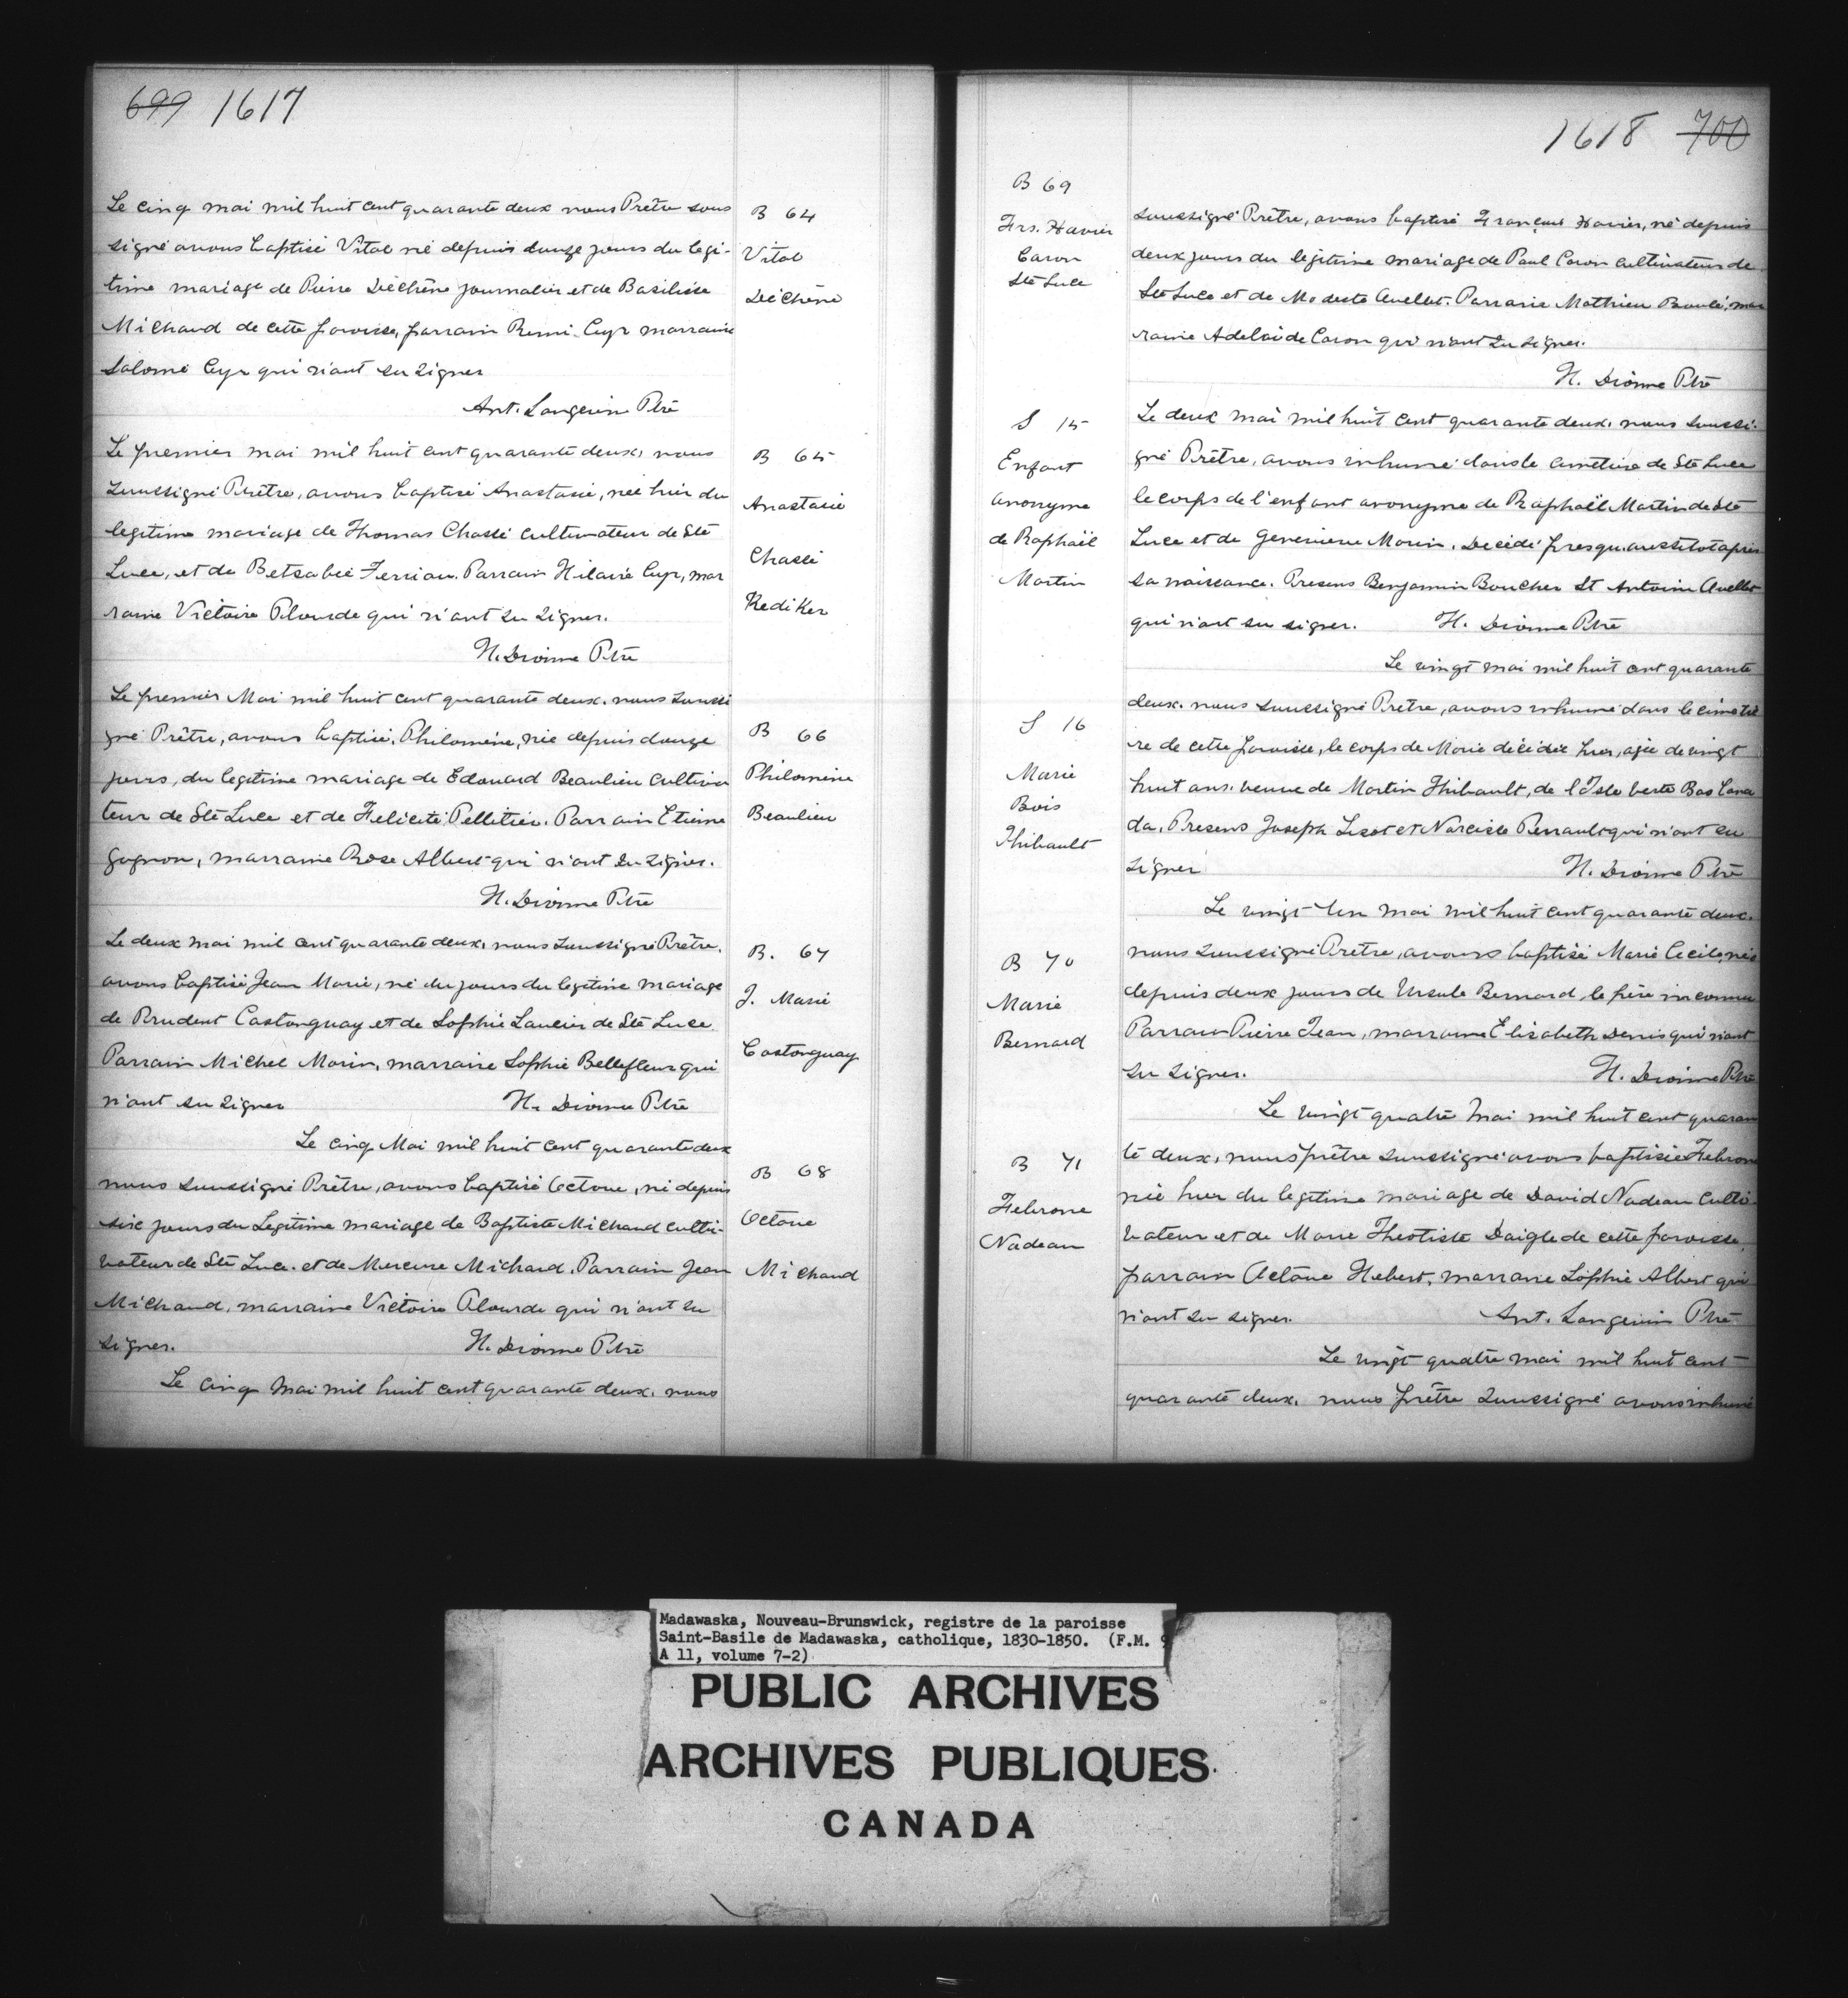 699 1617
Le cinq mai mil huit cent quarante deux nous Prêtre sous
signé avons baptisé Vital né depuis douze jours du légi-
time mariage de Pierre Déchêne journalier et de Basilisse
Michaud de cette paroisse, parrain Remi Cyr marraine
Salomé Cyr qui n'ont su signer
Ant. Langevin Ptre
B 64
Vital
Déchêne
Le premier mai mil huit cent quarante deux, nous
soussigné Prêtre, avons baptisé Anastasie, née hier du
légitime mariage de Thomas Chassé cultivateur de Ste
Luce, et de Betsabée Terriau. Parrain Hilaire Cyr, mar
raine Victoire Plourde qui n'ont su signer.
H. Dionne Ptre
B 65
Anastasie
Chassé
Rediker
Le premier Mai mil huit cent quarante deux. nous soussi
gné Prêtre, avons baptisé, Philomène, née depuis douze
jours, du légitime mariage de Edouard Beaulieu cultiva
teur de Ste Luce et de Félicité Pelletier. Parrain Etienne
Gagnon, marraine Rose Albert qui n'ont su signer.
H. Dionne Ptre
B 66
Philomène
Beaulieu
Le deux mai mil cent quarante deux, nous soussigné Prêtre,
avons baptisé Jean Marie, né du jours du légitime mariage
de Prudent Castonguay et de Sophie Lancier de Ste Luce.
Parrain Michel Morin, marraine Sophie Bellefleur qui
n'ont su signer H. Dionne Ptre
B. 67
J. Marie
Castonguay
Le cinq Mai mil huit cent quarante deux
nous soussigné Prêtre, avons baptisé Octave, né depuis
six jours du Légitime mariage de Baptiste Michaud culti-
vateur de Ste Luce. et de Mercure Michaud. Parrain Jean
Michaud, marraine Victoire Plourde qui n'ont su
signer. H. Dionne Ptre
B 68
Octave
Michaud
Le cinq Mai mil huit cent quarante deux, nous
1618 700
B 69
Frs. Xavier
Caron
Ste Luce
soussigné Prêtre, avons baptisé François Xavier, né depuis
deux jours du légitime mariage de Paul Caron cultivateur de
Ste Luce et de Modeste Ouellet. Parrain Mathieu Beaulé, mar
raine Adelaide Caron qui n'ont su signer.
H. Dionne Ptre
S 15
Enfant
anonyme
de Raphaël
Martin
Le deux mai mil huit cent quarante deux, nous soussi-
gné Prêtre, avons inhumé dans le cimetière de Ste Luce
le corps de l'enfant anonyme de Raphaël Martin de Ste
Luce et de Genevieve Morin. Décédé presqu'aussitôt après
sa naissance. Présens Benjamin Boucher et Antoine Ouellet
qui n'ont su signer. H. Dionne Ptre
Le vingt mai mil huit cent quarante
deux. nous soussigné Prêtre, avons inhumé dans le cimetiè
re de cette paroisse, le corps de Marie décédée hier, agée de vingt
huit ans. veuve de Martin Thibault, de l'Isle verte Bas Cana
da. Présens Joseph Lizot et Narcisse Perrault qui n'ont su
signer H. Dionne Ptre
S 16
Marie
Bois
Thibault
Le vingt-un mai mil huit cent quarante deux.
nous soussigné Prêtre, avons baptisé Marie Cecile, née
depuis deux jours de Ursule Bernard, le père inconnu
Parrain Pierre Jean, marraine Elisabeth Denis qui n'ont
su signer. H. Dionne Ptre
B 70
Marie
Bernard
Le vingt quatre Mai mil huit cent quaran
te deux, nous prêtre soussigné avons baptisée Febrone
née hier du légitime mariage de David Nadeau culti-
vateur et de Marie Theotiste Daigle de cette paroisse,
parrain Octave Hebert, marraine Sophie Albert qui
n'ont su signer. Ant. Langevin Ptre
B 71
Febrone
Nadeau
Le vingt quatre mai mil huit cent
quarante deux. nous prêtre soussigné avons inhumé
Madawaska, Nouveau-Brunswick, registre de la paroisse
Saint-Basile de Madawaska, catholique, 1830-1850. (F.M. 9
A 11, volume 7-2)
PUBLIC ARCHIVES
ARCHIVES PUBLIQUES
CANADA